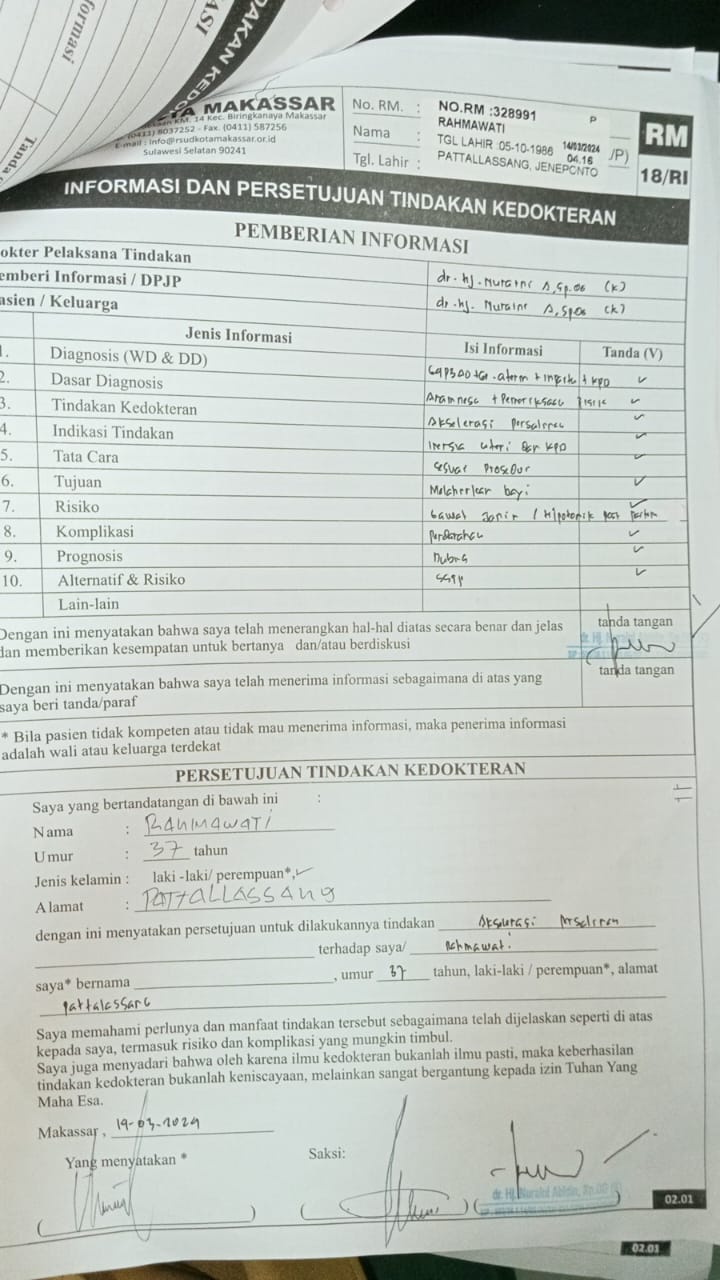 formasi
ASI
DAKAN KEDO
Tanda
TA MAKASSAR
KM. 14 Kec. Biringkanaya Makassar
(0411) 8037252 - Fax. (0411) 587256
E-mail : info@rsudkotamakassar.or.id
Sulawesi Selatan 90241
No. RM. : NO.RM :328991 P
Nama : RAHMAWATI
Tgl. Lahir : TGL LAHIR :05-10-1986 14/03/2024 /P)
PATTALLASSANG, JENEPONTO 04.16
RM
18/RI
INFORMASI DAN PERSETUJUAN TINDAKAN KEDOKTERAN
PEMBERIAN INFORMASI
okter Pelaksana Tindakan
emberi Informasi / DPJP dr. Hj. Nuraini A, Sp.OG (K)
asien / Keluarga dr. Hj. Nuraini A, SpOG (K)
Jenis Informasi Isi Informasi Tanda (V)
1. Diagnosis (WD & DD) aterm + inpartu + KPD ✓
2. Dasar Diagnosis Anamnesa + Pemeriksaan Fisik ✓
3. Tindakan Kedokteran Akselerasi persalinan ✓
4. Indikasi Tindakan Inersia uteri dan KPD ✓
5. Tata Cara Sesuai Prosedur ✓
6. Tujuan Melahirkan bayi ✓
7. Risiko Gawat Janin / Hipotonik post partum ✓
8. Komplikasi Perdarahan ✓
9. Prognosis Dubia ✓
10. Alternatif & Risiko ✓
Lain-lain
Dengan ini menyatakan bahwa saya telah menerangkan hal-hal diatas secara benar dan jelas
dan memberikan kesempatan untuk bertanya dan/atau berdiskusi
tanda tangan
tanda tangan
Dengan ini menyatakan bahwa saya telah menerima informasi sebagaimana di atas yang
saya beri tanda/paraf
* Bila pasien tidak kompeten atau tidak mau menerima informasi, maka penerima informasi
adalah wali atau keluarga terdekat
PERSETUJUAN TINDAKAN KEDOKTERAN
Saya yang bertandatangan di bawah ini :
Nama : RAHMAWATI
Umur : 37 tahun
Jenis kelamin : laki -laki/ perempuan*, ✓
Alamat : PATTALLASSANG
dengan ini menyatakan persetujuan untuk dilakukannya tindakan Akselerasi persalinan
terhadap saya/ Rahmawati
saya* bernama , umur 37 tahun, laki-laki / perempuan*, alamat
pattalassang
Saya memahami perlunya dan manfaat tindakan tersebut sebagaimana telah dijelaskan seperti di atas
kepada saya, termasuk risiko dan komplikasi yang mungkin timbul.
Saya juga menyadari bahwa oleh karena ilmu kedokteran bukanlah ilmu pasti, maka keberhasilan
tindakan kedokteran bukanlah keniscayaan, melainkan sangat bergantung kepada izin Tuhan Yang
Maha Esa.
Makassar, 14-03-2024
Yang menyatakan * Saksi:
dr. Hj. Nuraini Abidin, Sp.OG (K)
02.01
02.01